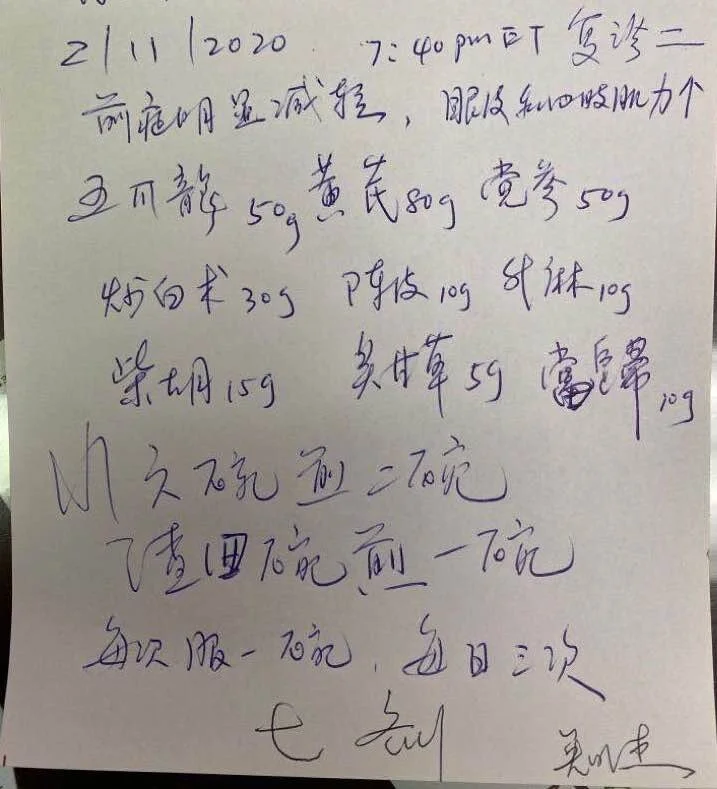 2/11/2020 7:40pm ET 复诊二
前症明显减轻，眼皮和四肢肌力个
五爪龍 50g 黄芪 80g 党参 50g
炒白术 30g 陈皮 10g 升麻 10g
柴胡 15g 炙甘草 5g 當归 10g
水六碗煎二碗
渣四碗煎一碗
每次服一碗，每日三次
七剂